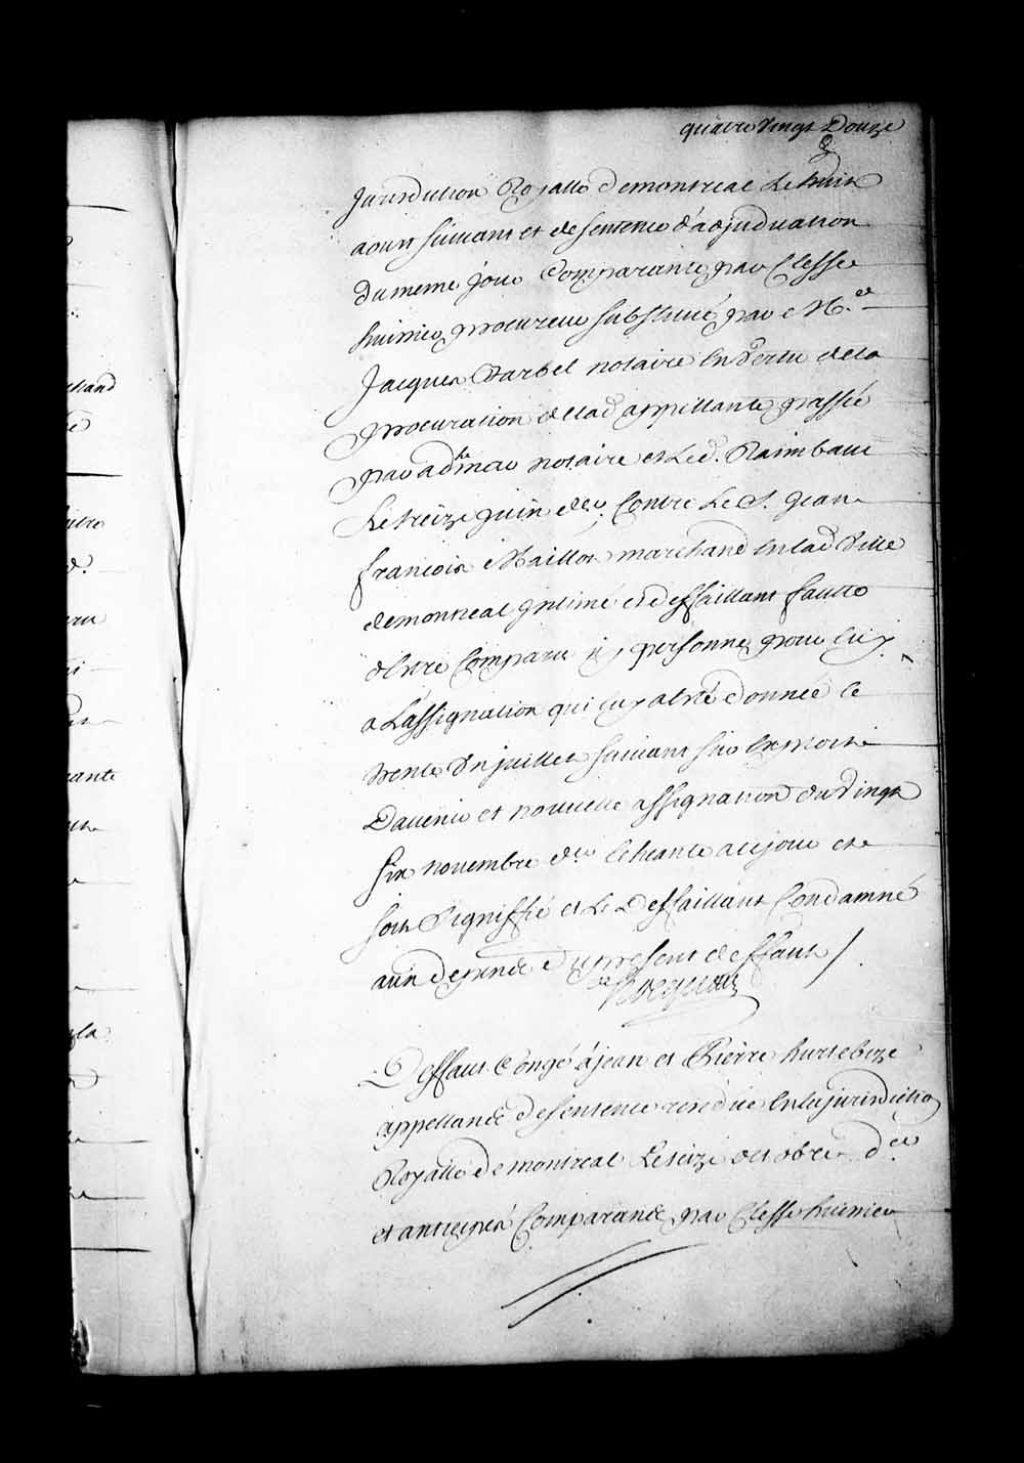 quatre Vingt Douze
Jurisdiction Royalle demontreal Le huit
aoust suivant et de sentence d'adjudication
du meme jour Comparante par Clesse
huissier procureur substitué par Me
Jacques Barbel notaire En Vertu dela
procuration de lad appellante passée
par adhmar notaire et Led. Raimbault
Le treize juin der. Contre Le S. Jean
francois Maillot marchand En lad Ville
demonreal Intimé et deffaillant faulte
d'Estre Comparu ny personne pour luy
a L'assignation qui luy a Esté donnée le
trente Un juillet suivant
Davenir et nouvelle assignation du Vingt
six novembre der. Echeante ace jour et
soit Signiffié et Le Deffaillant Condamné
aux depends du present deffaut /.

Deffaut Congé à jean et Pierre hurtebize
appellants de sentence rendue En la jurisdiction
Royalle de montreal Le seize octobre der.
et anticipés Comparants par Clesse huissier